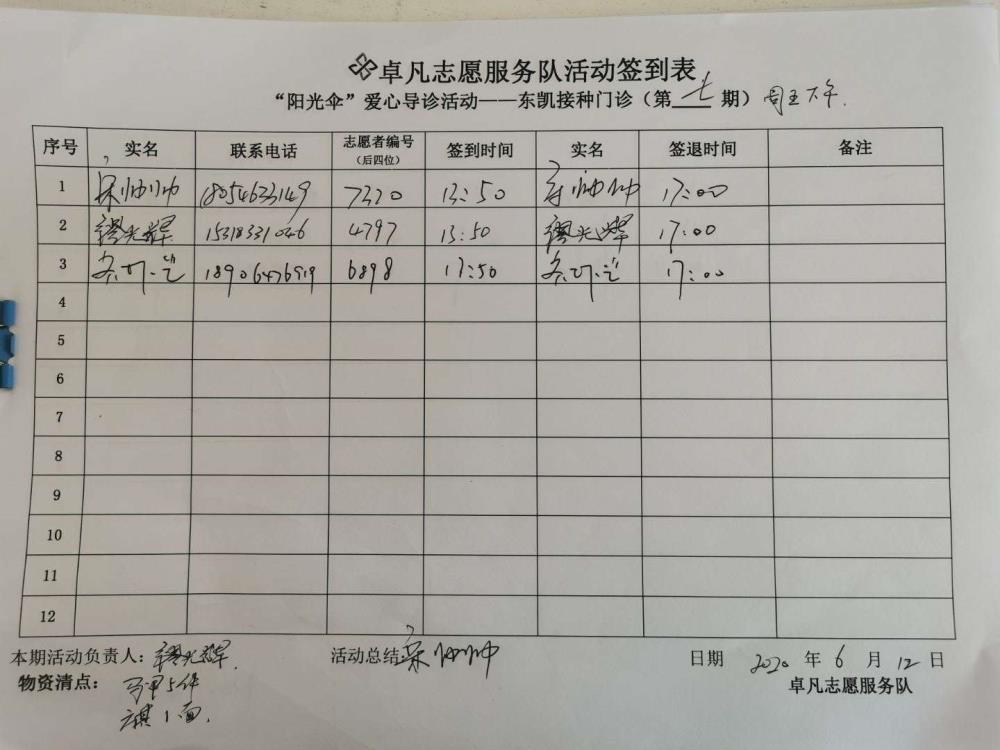 卓凡志愿服务队活动签到表
“阳光伞”爱心导诊活动——东凯接种门诊（第七期）周五下午.
序号 实名 联系电话 志愿者编号（后四位） 签到时间 实名 签退时间 备注
1 宋帅帅 18054633149 7320 13:50 宋帅帅 17:00
2 光辉 15318331046 4797 13:50 光辉 17:00
3 18906476919 6898 13:50 17:00
4
5
6
7
8
9
10
11
12
本期活动负责人：光辉. 活动总结 宋帅帅 日期 2020 年 6 月 12 日
物资清点：马甲5件 卓凡志愿服务队
旗1面.